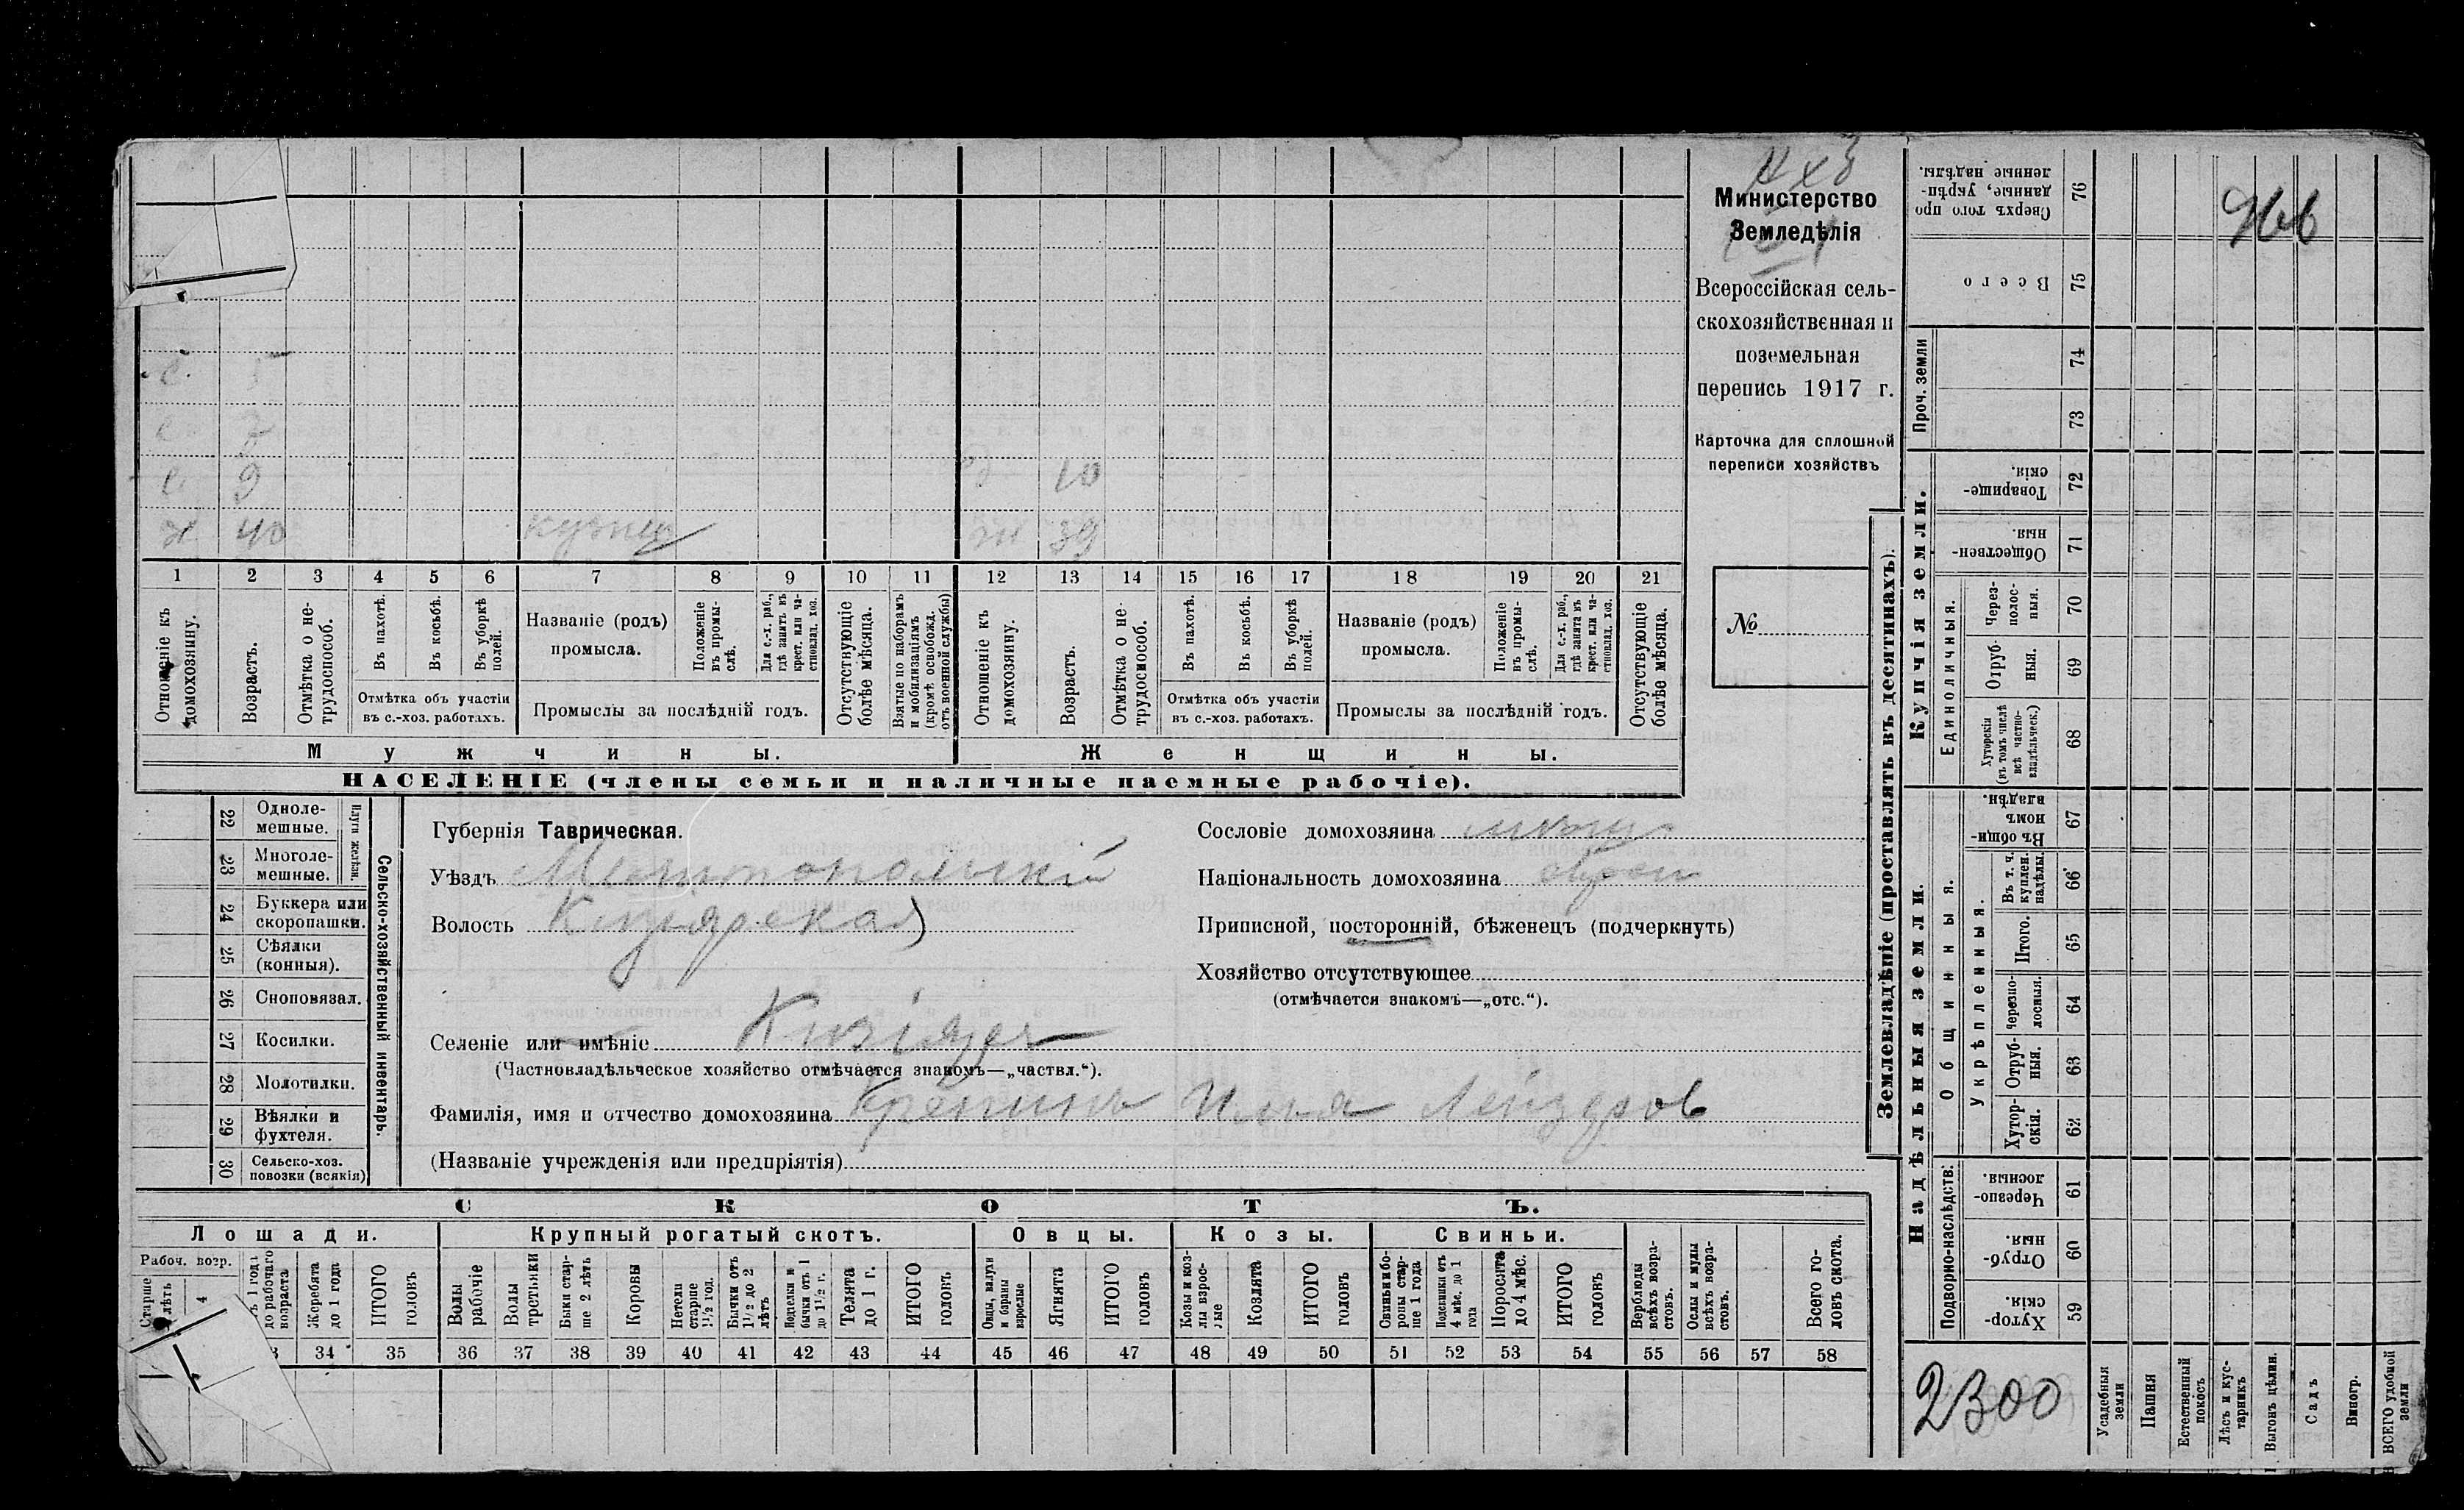 Министерство
Земледѣлія
Всероссійская сель-
скохозяйственная и
поземельная
перепись 1917 г.
Карточка для сплошной
переписи хозяйствъ
№
с. 5
с 7
с 9 10
х 40 кузнец ж 39
1 2 3 4 5 6 7 8 9 10 11 12 13 14 15 16 17 18 19 20 21
Отношеніе къ домохозяину.
Возрастъ.
Отмѣтка о не-трудоспособ.
Въ пахотѣ.
Въ косьбѣ.
Въ уборкѣ полей.
Отмѣтка объ участіи
въ с.-хоз. работахъ.
Названіе (родъ)
промысла.
Положеніе въ промы-слѣ.
Для с.-х. раб., гдѣ занятъ въ крест. или ча-стновлад. хоз.
Промыслы за послѣдній годъ.
Отсутствующіе болѣе мѣсяца.
Взятые по наборамъ и мобилизаціямъ (кромѣ освобожд. отъ военной службы)
Отношеніе къ домохозяину.
Возрастъ.
Отмѣтка о не-трудоспособ.
Въ пахотѣ.
Въ косьбѣ.
Въ уборкѣ полей.
Отмѣтка объ участіи
въ с.-хоз. работахъ.
Названіе (родъ)
промысла.
Положеніе въ промы-слѣ.
Для с.-х. раб., гдѣ занята въ крест. или ча-стновлад. хоз.
Промыслы за послѣдній годъ.
Отсутствующіе болѣе мѣсяца.
Мужчины. Женщины.
НАСЕЛЕНІЕ (члены семьи и наличные наемные рабочіе).
Сельско-хозяйственный инвентарь.
Плуги желѣзн.
22 Одноле-мешные.
23 Многоле-мешные.
24 Буккера или скоропашки.
25 Сѣялки (конныя).
26 Сноповязал.
27 Косилки.
28 Молотилки.
29 Вѣялки и фухтеля.
30 Сельско-хоз. повозки (всякія)
Губернія Таврическая.
Уѣздъ Мелитопольскій
Волость Кизіярская
Селеніе или имѣніе Кизіяръ
(Частновладѣльческое хозяйство отмѣчается знакомъ—„частвл.“).
Фамилія, имя и отчество домохозяина Крепинъ Илья Лейзеров
(Названіе учрежденія или предпріятія)
Сословіе домохозяина мѣщ.
Національность домохозяина еврей
Приписной, посторонній, бѣженецъ (подчеркнуть)
Хозяйство отсутствующее
(отмѣчается знакомъ—„отс.“).
СКОТЪ.
Лошади. Крупный рогатый скотъ. Овцы. Козы. Свиньи.
Рабоч. возр.
Старше
4 лѣтъ
4
1 года до рабочаго возраста
Жеребята до 1 года
ИТОГО головъ
Волы рабочіе
Волы третьяки
Быки стар-ше 2 лѣтъ
Коровы
Нетели старше 1½ год.
Бычки отъ 1½ до 2 лѣтъ
Подтелки и бычки отъ 1 до 1½ г.
Телята до 1 г.
ИТОГО головъ
Овцы, валухи и бараны взрослые
Ягнята
ИТОГО головъ
Козы и коз-лы взрос-лые
Козлята
ИТОГО головъ
Свиньи и бо-ровы стар-ше 1 года
Подсвинки отъ 4 мѣс. до 1 года
Поросята до 4 мѣс.
ИТОГО головъ
Верблюды всѣхъ возра-стовъ.
Ослы и мулы всѣхъ возра-стовъ.
Всего го-ловъ скота.
34 35 36 37 38 39 40 41 42 43 44 45 46 47 48 49 50 51 52 53 54 55 56 57 58
Землевладѣніе (проставлять въ десятинахъ).
Надѣльныя земли.
Купчія земли.
Проч. земли
Сверхъ того про данные, укрѣп-ленные надѣлы. 76
Всего 75
74
73
Товарище-скія. 72
Обществен-ныя. 71
Единоличныя.
Через-полос-ныя. 70
Отруб-ныя. 69
Хуторскія (въ томъ числѣ всѣ частно-владѣльческ.) 68
Общинныя.
Въ общи-номъ владѣн. 67
Укрѣпленныя.
Въ т. ч. куплен. надѣлы. 66
Итого. 65
Черезпо-лосныя. 64
Отруб-ныя. 63
Хутор-скія. 62
Подворно-наслѣдств:
Черезпо-лосныя. 61
Отруб-ныя. 60
Хутор-скія. 59
2300
Усадебныя земли
Пашня
Естественный покосъ
Лѣсъ и кус-тарникъ
Выгонъ цѣлин.
Садъ
Виногр.
ВСЕГО удобной земли